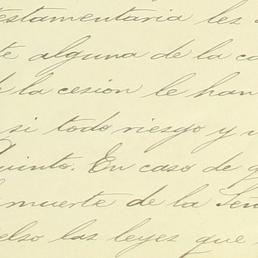 testamentaria les
te alguna de la co
de la cesión le han
si todo riesgo y v
Quinto. En caso de q
muerte de la Señ
elso las leyes que